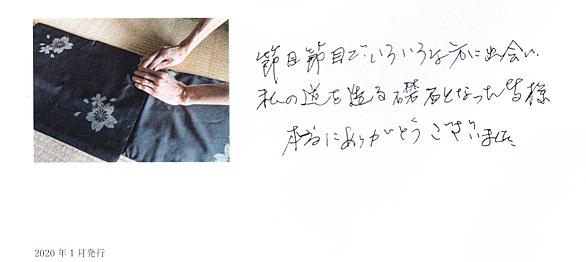 節目節目で、いろいろな方に出会い、
私の道を造る礎石となった皆様
本当にありがとうございました
2020年1月発行